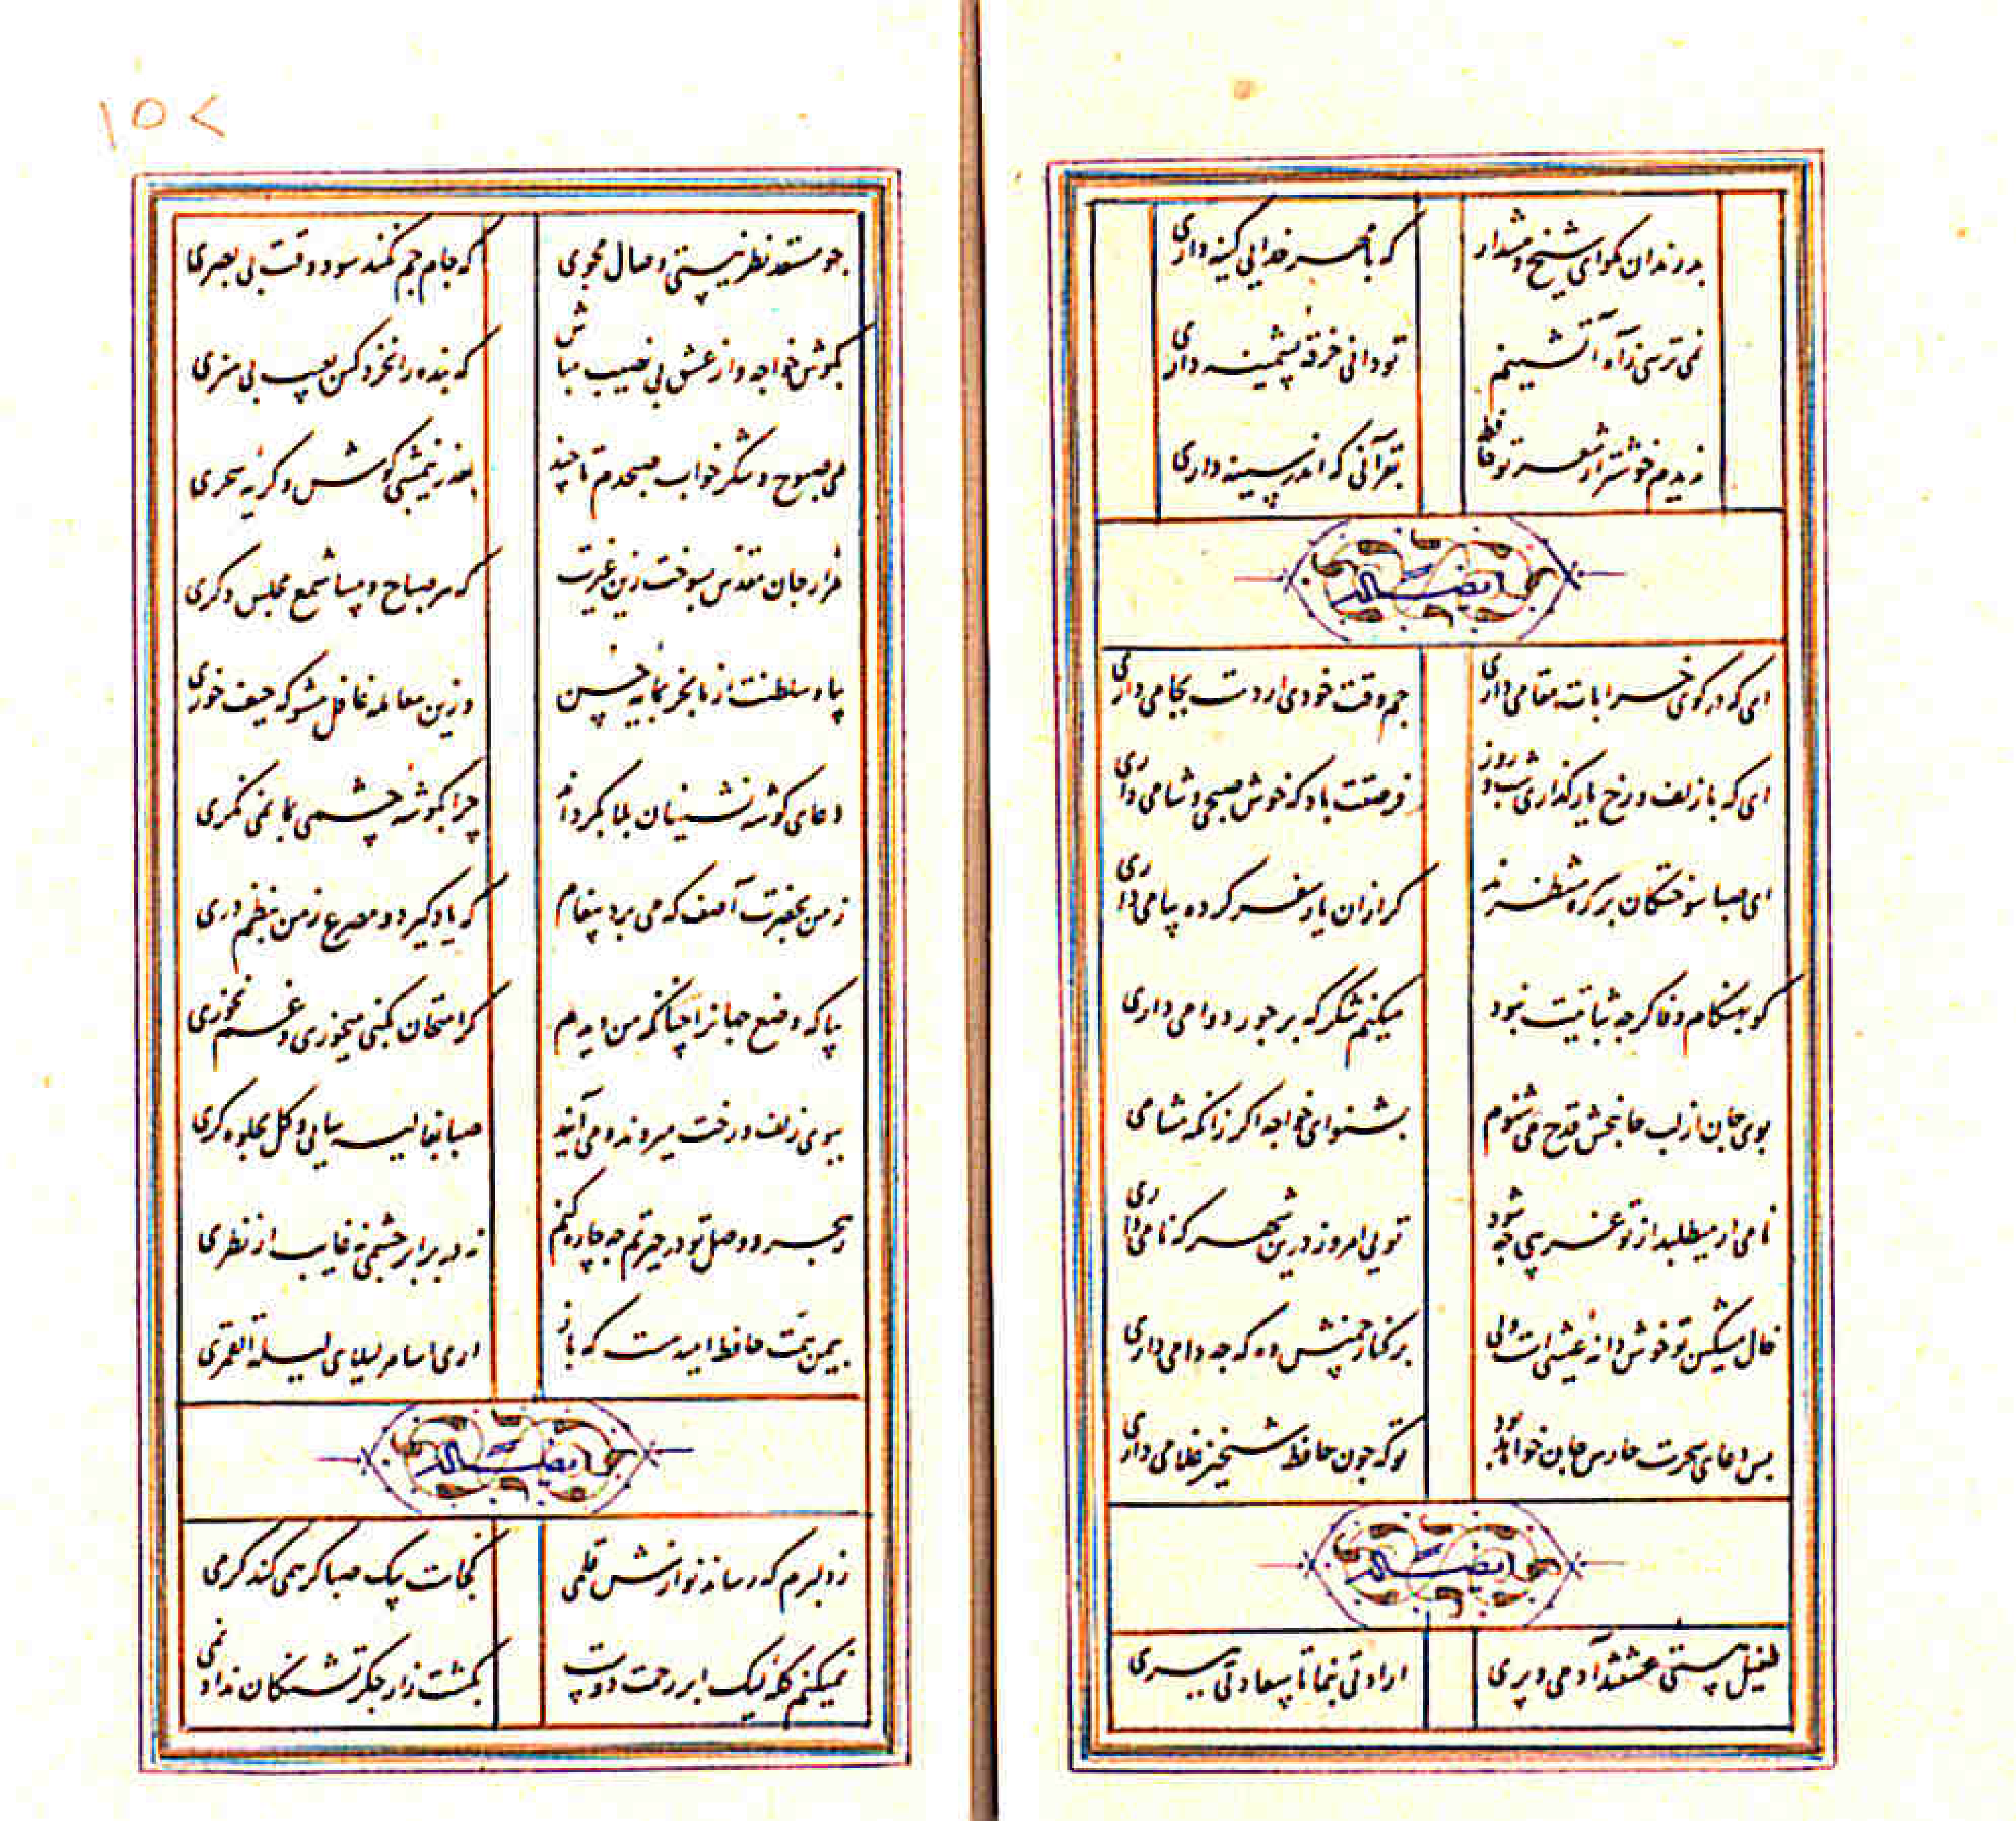 بد رندان مکو ای شیخ و هشدار که با مهر خدایی کینه داری
نمی ترسی ز آه آتشینم تو دانی خرقه پشمینه داری
ندیدم خوشتر از شعر تو حافظ بقرآنی که اندر سینه داری
ایضا له
ای که در کوی خرابات مقامی داری جم وقت خودی ار دست بجامی داری
ای که با زلف و رخ یار گذاری شب و روز فرصتت باد که خوش صبحی و شامی داری
ای صبا سوختگان بر سر ره منتظرند کر ازان یار سفر کرده پیامی داری
کو بهنکام وفا کرچه ثباتیت نبود میکنم شکر که بر جور دوامی داری
بوی جان از لب جانبخش قدح می شنوم بشنو ای خواجه اکر زانکه مشامی
نامی ار میطلبد از تو غریبی چه شود تویی امروز درین شهر که نامی داری
خال مشکین تو خوش دانه عیشی است ولی بر کنار چمنش وه که چه دامی داری
بس دعای سحرت حارس جان خواهد بود تو که چون حافظ شبخیز غلامی داری
ایضا له
طفیل هستی عشقند آدمی و پری ارادتی بنما تا سعادتی ببری
۱۵۸
چو مستعد نظر نیستی وصال مجوی که جام جم نکند سود وقت بی بصری
بکوش خواجه و از عشق بی نصیب مباش که بنده را نخرد کس بعیب بی هنری
می صبوح و شکر خواب صبحدم تا چند بعذر نیمشبی کوش و کریه سحری
هزار جان مقدس بسوخت زین غیرت که هر صباح و مسا شمع مجلس دکری
بیا و سلطنت از ما بخر بمایه حسن وزین معامله غافل مشو که حیف خوری
دعای کوشه نشینان بلا بکرداند چرا بکوشه چشمی بما نمی نکری
ز من بحضرت آصف که می برد پیغام که یاد کیر دو مصرع ز من بنظم دری
بیا که وضع جهانرا چنانکه من دیدم کر امتحان بکنی می خوری و غم نخوری
ببوی زلف و رخت میروند و می آیند صبا بغالیه سایی و کل بجلوه کری
ز هجر و وصل تو در حیرتم چه چاره کنم نه در برابر چشمی نه غایب از نظری
بیمن همت حافظ امید هست که باز اری اسامر لیلای لیلة القمری
ایضا له
ز دلبرم که رساند نوازش قلمی کجاست پیک صبا کر همی کند کرمی
نمیکنم کله لیک ابر رحمت دوست بکشت زار جکر تشنکان نداد نمی